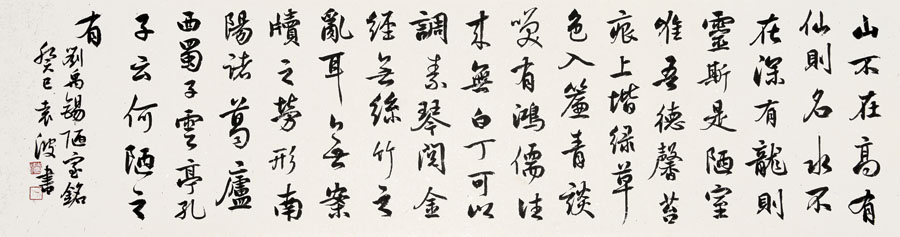 山不在高有
仙則名水不
在深有龍則
靈斯是陋室
唯吾德馨苔
痕上堦緑草
色入簾青談
咲有鴻儒往
来無白丁可以
調素琴閱金
經无絲竹之
亂耳无案
牘之勞形南
陽諸葛廬
西蜀子雲亭孔
子云何陋之
有
劉禹錫陋室銘
癸巳袁波書